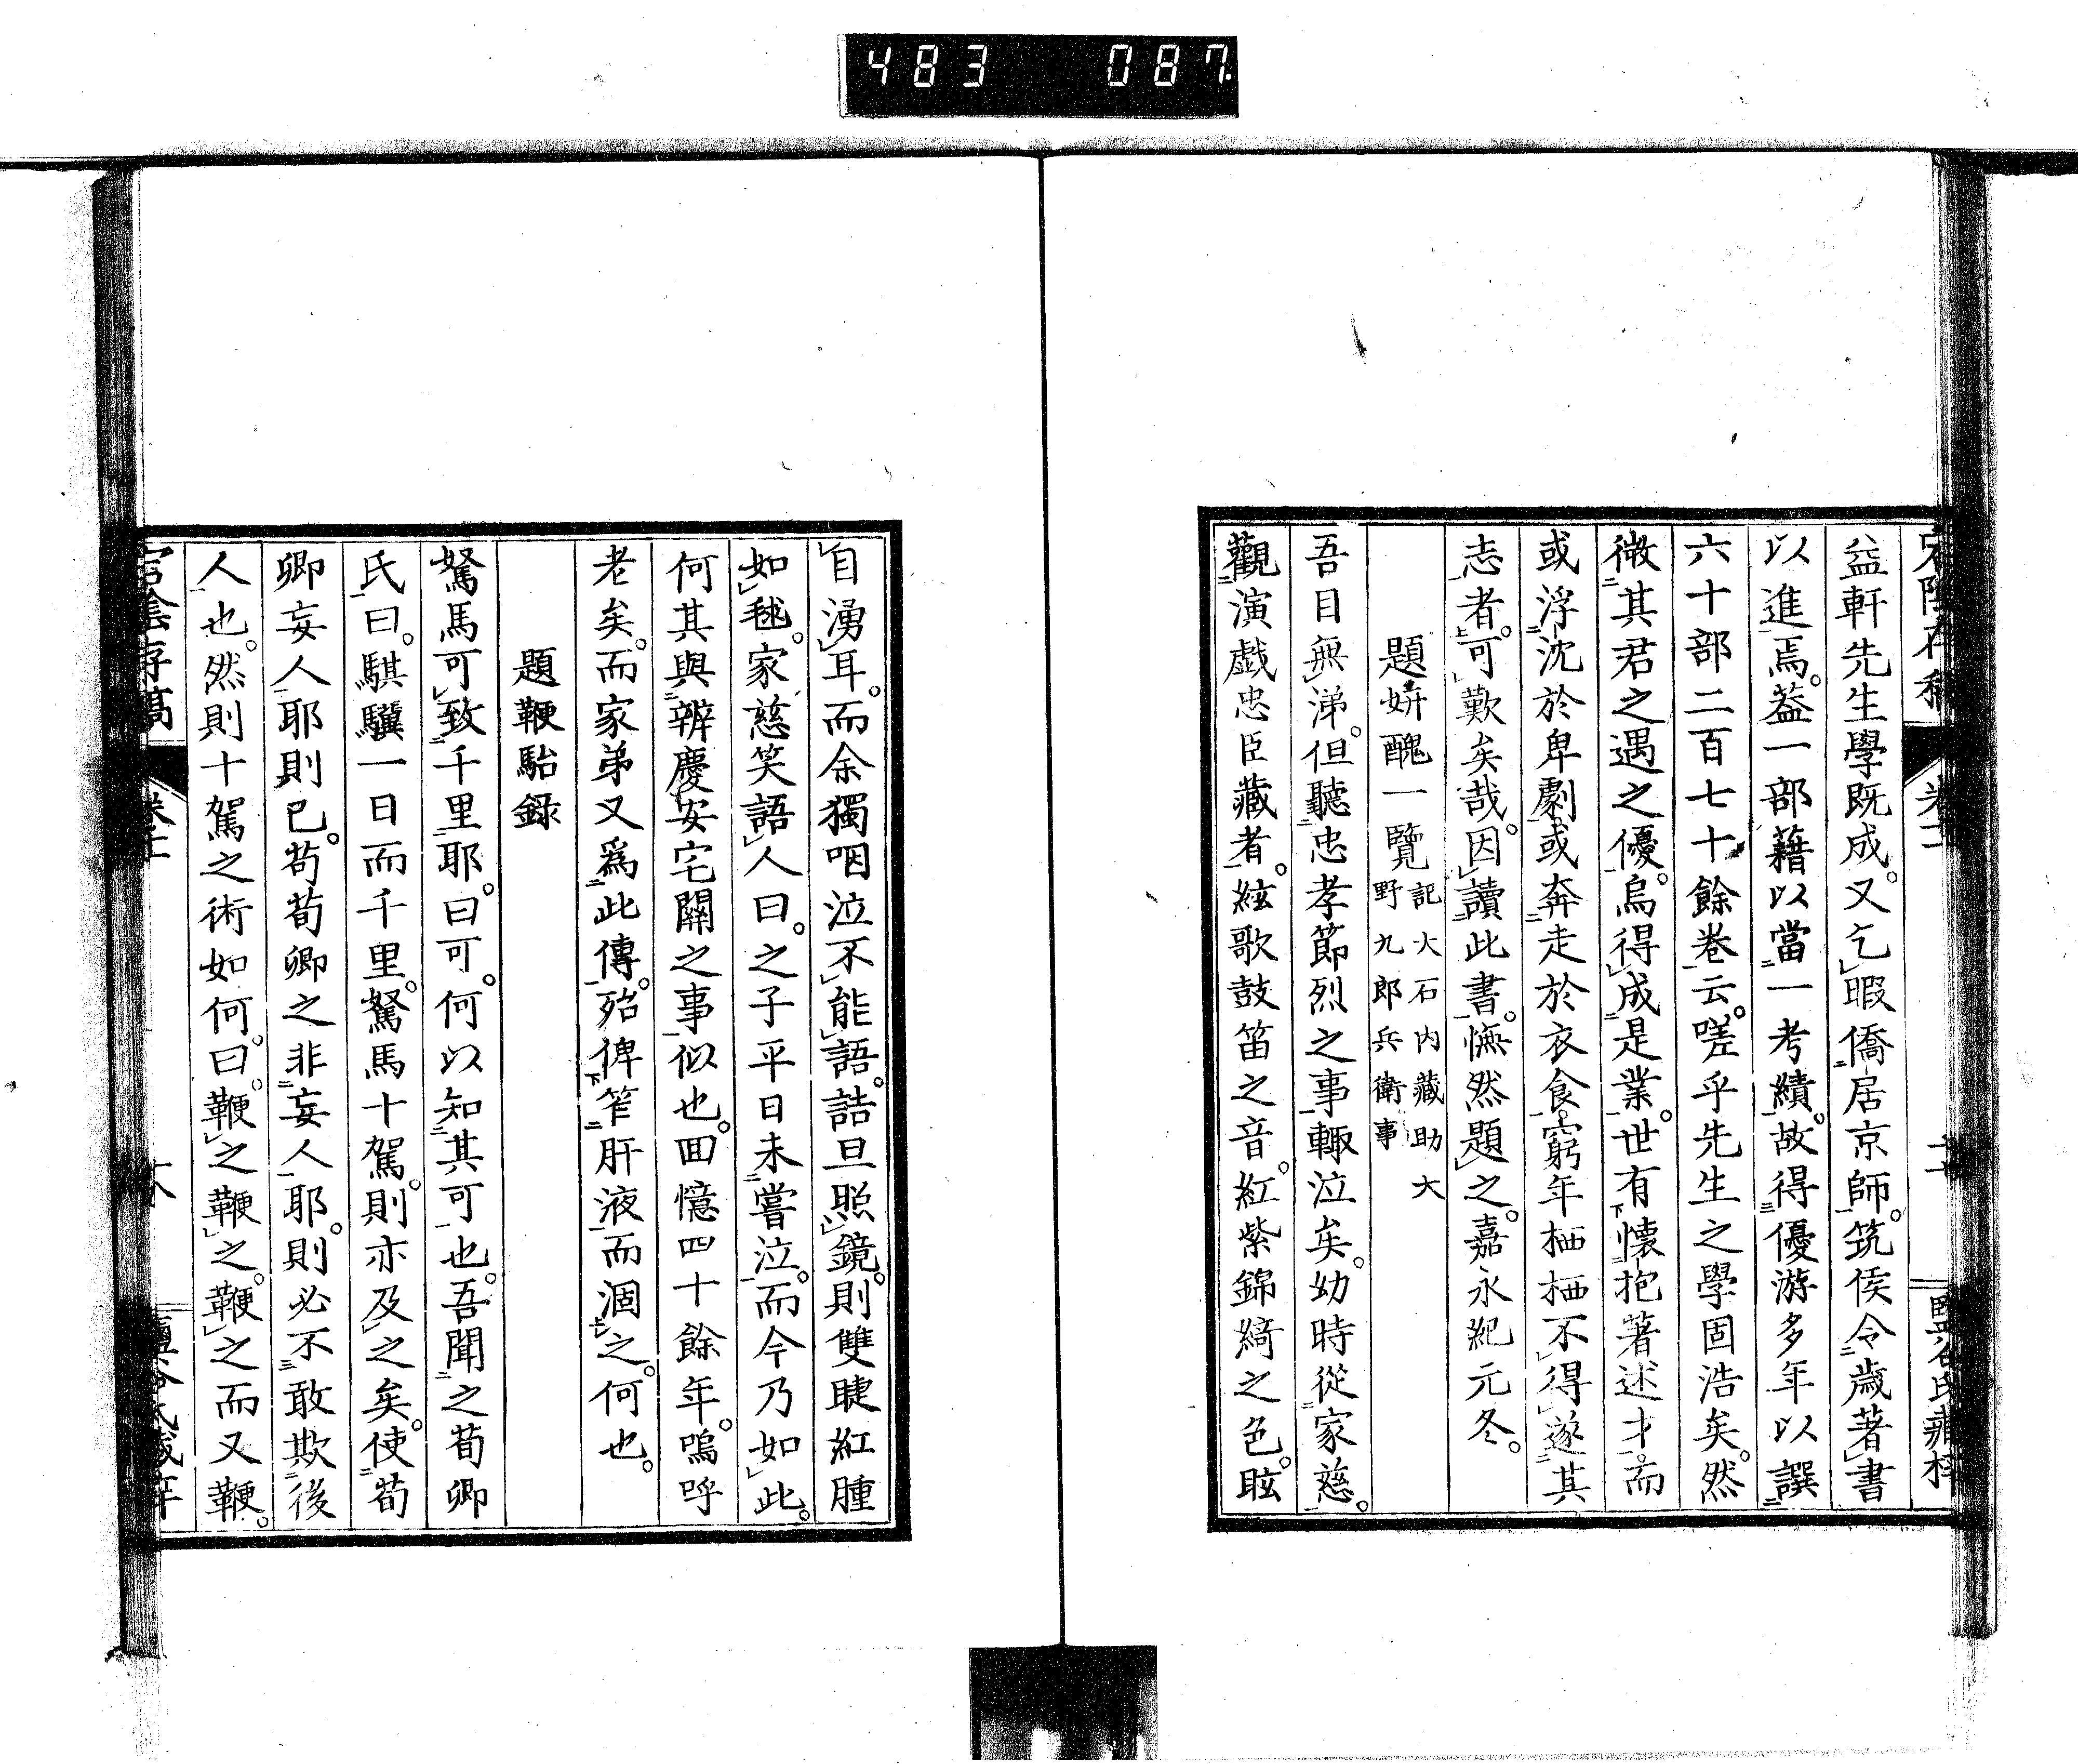 483 087
益軒先生學既成。又乞暇僑居京師。筑侯令歳著書
以進焉。葢一部藉以當一考績。故得優游多年以譔
六十部二百七十餘卷云。嗟乎先生之學固浩矣。然
微其君之遇之優。烏得成是業。世有懐抱著述才。而
或浮沈於卑劇。或奔走於衣食。窮年栖栖不得遂其
志者。可歎矣哉。因讀此書。憮然題之。嘉永紀元冬。
題姸醜一覽記大石内藏助大
野九郎兵衛事
吾目無涕。但聽忠孝節烈之事輙泣矣。幼時從家慈。
觀演戯忠臣藏者。絃歌鼓笛之音。紅紫錦綺之色。眩
自湧耳。而余獨咽泣不能語。詰旦照鏡。則雙睫紅腫
如毬。家慈笑語人曰。之子平日未嘗泣。而今乃如此。
何其與辨慶安宅關之事似也。囬憶四十餘年。嗚呼
老矣。而家弟又爲此傳。殆俾笮肝液而涸之。何也。
題鞭駘録
駑馬可致千里耶。曰可。何以知其可也。吾聞之荀卿
氏曰。騏驥一日而千里。駑馬十駕。則亦及之矣。使荀
卿妄人耶則已。苟荀卿之非妄人耶。則必不敢欺後
人也。然則十駕之術如何。曰。鞭之鞭之。鞭之而又鞭。